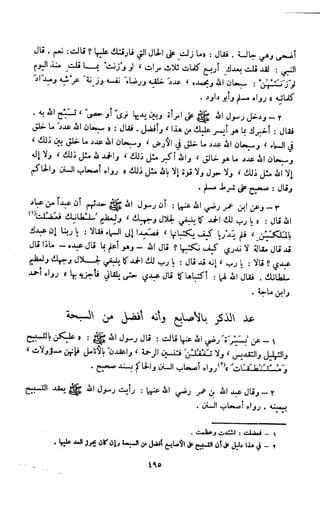 أضحى وهي جالسة . فقال : « ما زلت على الحال التي فارقتك عليها ؟ قالت : نعم . قال
النبي : لقد قلت بعدك أربع كلمات ثلاث مرات ، لو وزنت بما قلت منذ اليوم
لوزنتهن : سبحان الله وبحمده ، عدد خلقه ورضاء نفسه وزنة عرشه ومداد
كلماته » رواه مسلم وأبو داود .
٢ – ودخل رسول الله ﷺ على امرأة وبين يديها نوى أو حصى ، تسبح الله به .
فقال : أخبرك بما هو أيسر عليك من هذا ، وأفضل . فقال : « سبحان الله عدد ما خلق
في السماء ، وسبحان الله عدد ما خلق في الأرض ، وسبحان الله عدد ما خلق بين ذلك ،
وسبحان الله عدد ما هو خالق ، والله أكبر مثل ذلك ، والحمد لله مثل ذلك ، ولا إله
إلا الله مثل ذلك ، ولا حول ولا قوة إلا بالله مثل ذلك » رواه أصحاب السنن والحاكم
وقال : صحيح على شرط مسلم .
٣ – وعن ابن عمر رضي الله عنهما : أن رسول الله ﷺ حدثهم أن عبداً من عباد
الله قال : « يا رب لك الحمد كما ينبغي لجلال وجهك ، ولعظيم سلطانك فعضلت (١)
بالملكين ، فلم يدريا كيف يكتبانها ، فصعدا إلى السماء فقالا : يا ربنا إن عبدك
قد قال مقالة لا ندري كيف نكتبها ؟ قال الله – وهو أعلم بما قال عبده – ماذا قال
عبدي ؟ قالا : يا رب ، إنه قد قال : يا رب لك الحمد كما ينبغي لجلال وجهك ولعظيم
سلطانك . فقال الله لهما : أكتباها كما قال عبدي حتى يلقاني فأجزيه بها » رواه أحمد
وابن ماجة .
عد الذكر بالأصابع وأنه أفضل من السبحة
١ – عن يسيرة رضي الله عنها قالت : قال رسول الله ﷺ : « عليكن بالتسبيح
والتهليل والتقديس ، ولا تغفلن فتنسين الرحمة ، واعقدن بالأنامل فإنهن مسؤولات ،
ومستنطقات » (٢) رواه أصحاب السنن والحاكم بسند صحيح .
٢ – وقال عبد الله بن عمر رضي الله عنهما : رأيت رسول الله ﷺ يعقد التسبيح
بيمينه . رواه أصحاب السنن .
١ – فعضلت : اشتدت وعظمت .
٢ – في هذا دليل على أن التسبيح على الأصابع أفضل من السبحة وإن كان يجوز العد عليها .
٤٩٥